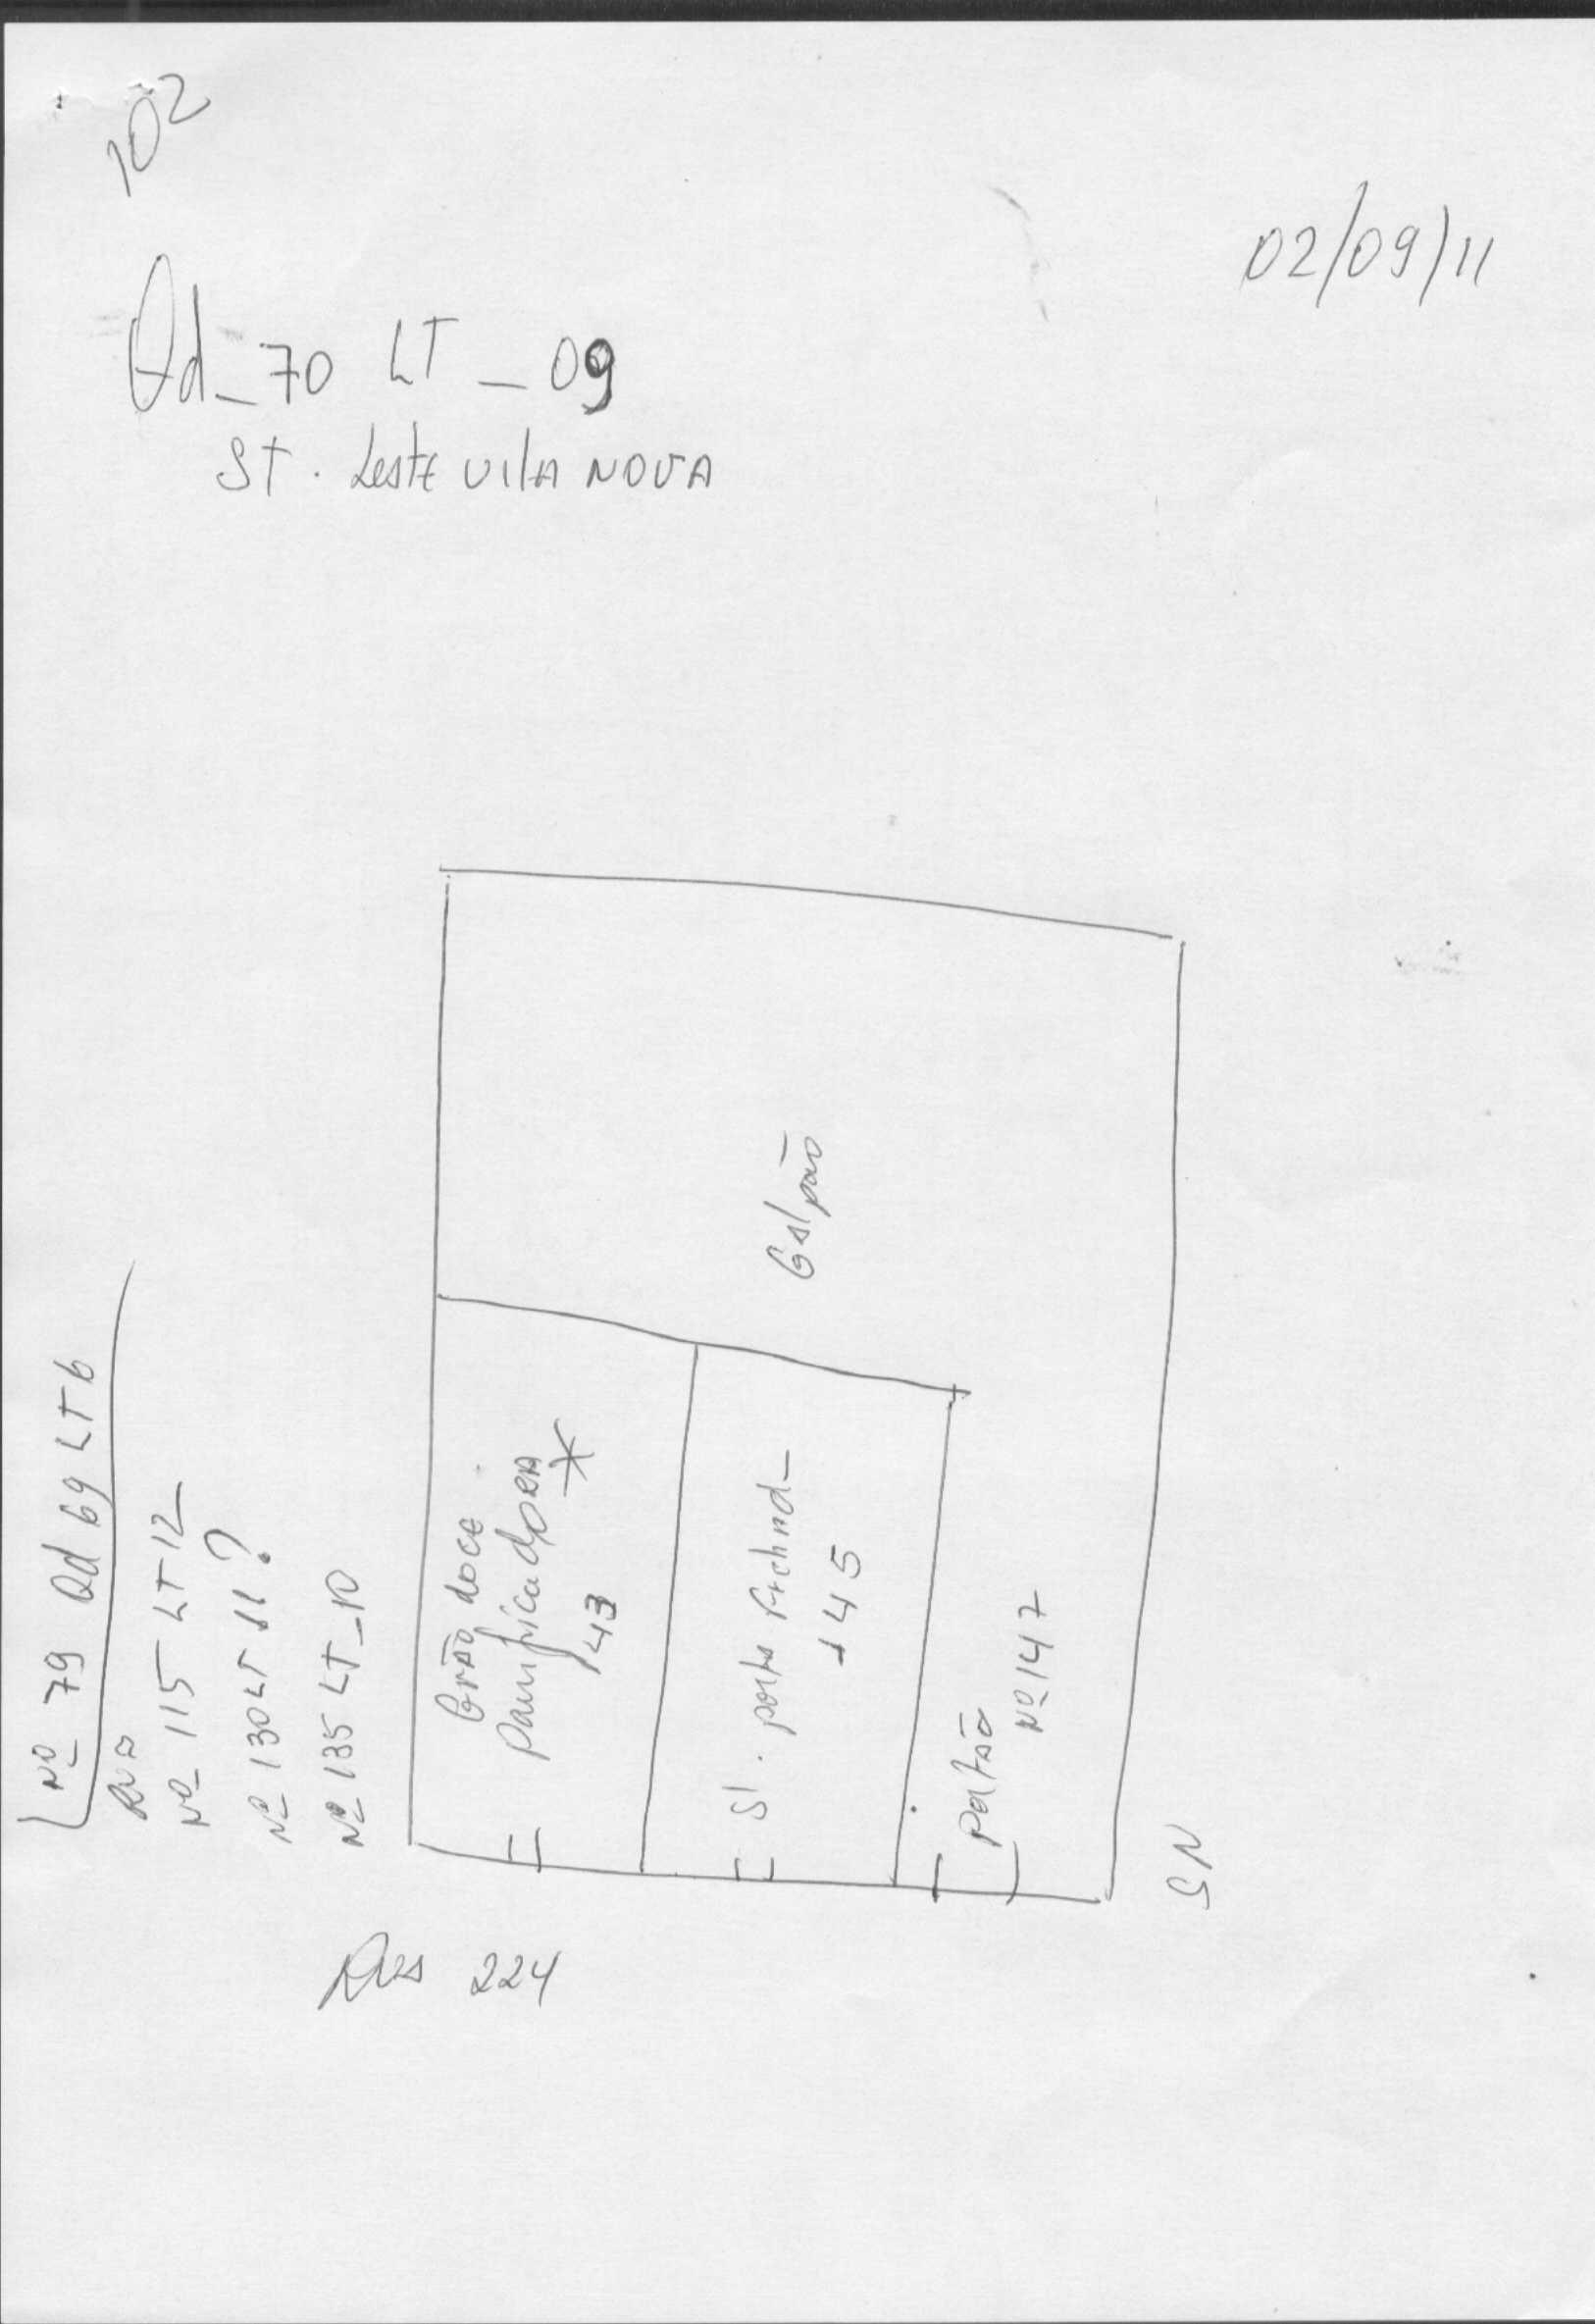 102
02/09/11
Qd_70 LT_09
ST. Leste VILA NOVA
Nº 79 Qd 69 LT 6
RUA
Nº 115 LT 12
Nº 130 LT 11?
Nº 135 LT_10
Galpão
Grão doce
Panificadora
143
Sl. porta
145
Portão
Nº 147
SN
Rua 224